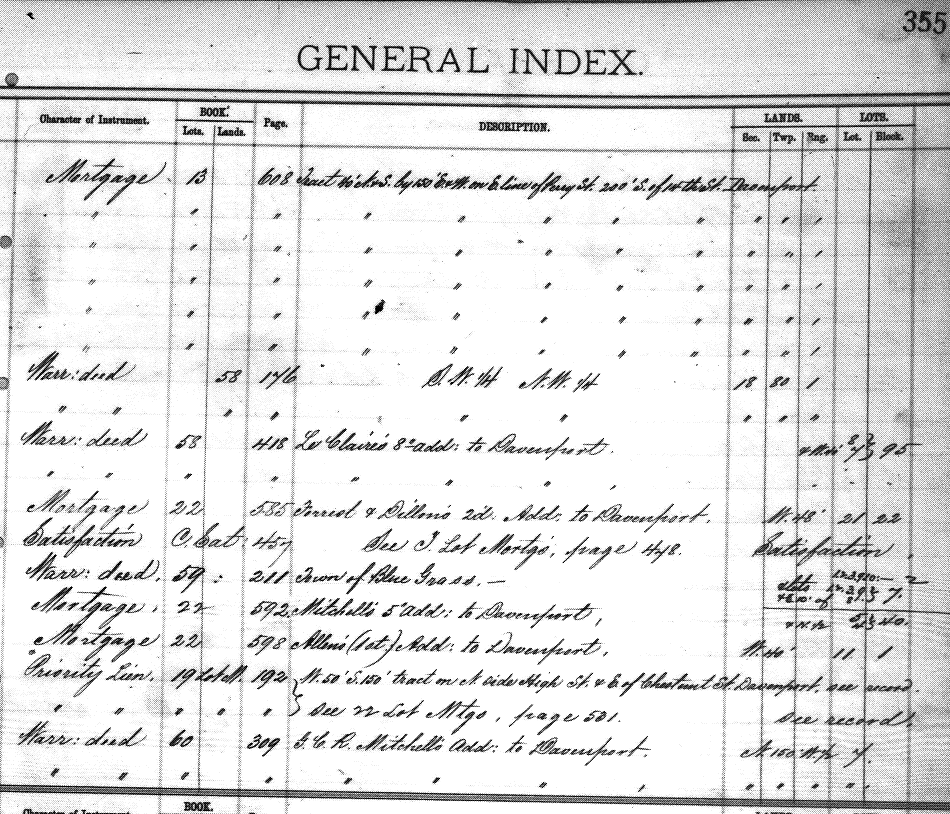 355
GENERAL INDEX.
Character of Instrument. BOOK. Page. DESCRIPTION. LANDS. LOTS.
Lots. Lands. Sec. Twp. Rng. Lot. Block.
Mortgage 13 608 Tract 40' N & S. by 150' E & W. on E line of Perry St. 200' S. of 14th St. Davenport.
" " " " " " " " " " "
" " " " " " " " " " "
" " " " " " " " " " "
" " " " " " " " " " "
" " " " " " " " " " "
Warr: deed 58 176 S.W. 1/4 N.W. 1/4 18 80 1
" " " " " " " " "
Warr: deed 58 418 Le Claire's 8th add: to Davenport. 7 95
" " " " " " "
Mortgage 22 585 Forrest & Dillon's 2d. Add: to Davenport. W. 48' 21 22
Satisfaction C. Cat: 457 See I. Lot Mortgs, page 478. Satisfaction.
Warr: deed. 59 : 211 Town of Blue Grass. — 7.
Mortgage. 22 592 Mitchell's 5th add: to Davenport, 40.
Mortgage 22 598 Allen's (1st) Add: to Davenport, W. 40' 11 1
Priority Lien. 19 Lot M. 192 W. 50' S. 150' tract on N side High St. & E. of Chestnut St. Davenport. see record.
" " " " " see 22 Lot Mtgs, page 501. See record.
Warr: deed 60 309 G. C. R. Mitchell's Add: to Davenport. N. 150' W. 1/2 7.
" " " " " " " " " " " "
Character of Instrument. BOOK. LANDS.